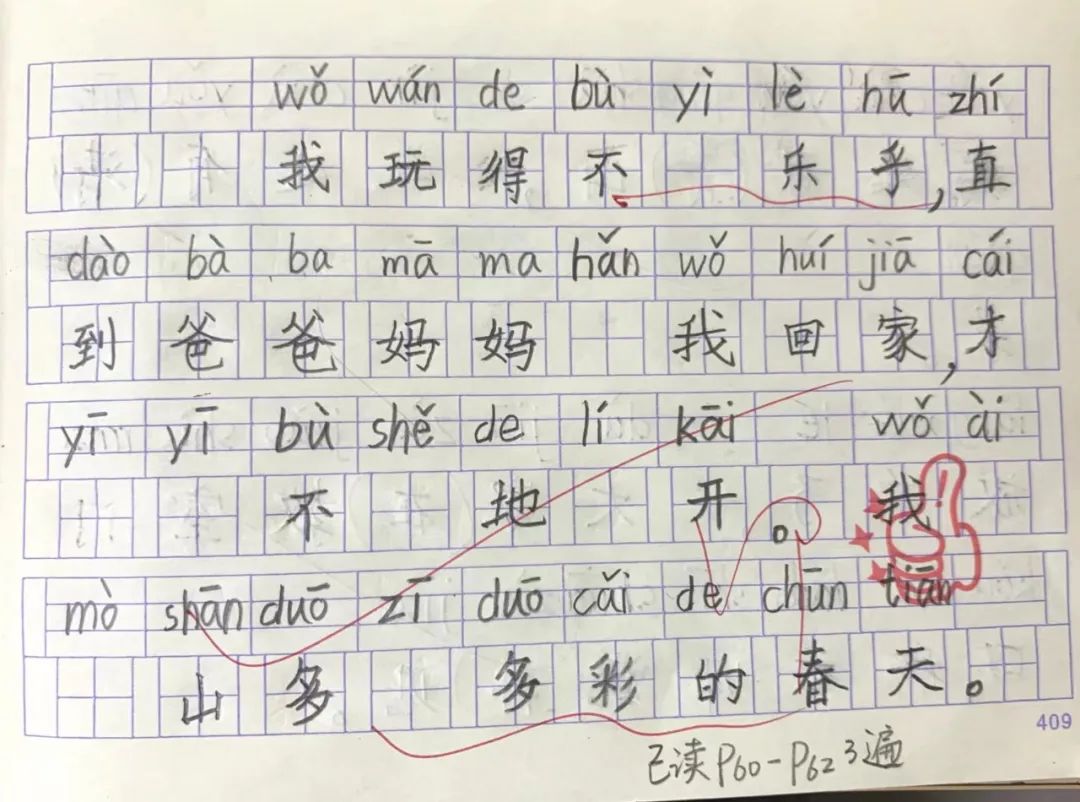 wǒ wán de bù yì lè hū zhí
我玩得不 乐乎,直
dào bà ba mā ma hǎn wǒ huí jiā cái
到爸爸妈妈 我回家,才
yī yī bù shě de lí kāi wǒ ài
不 地 开。我
mò shān duō zī duō cǎi de chūn tiān
山多 多彩的春天。
409
已读P60-P62 3遍